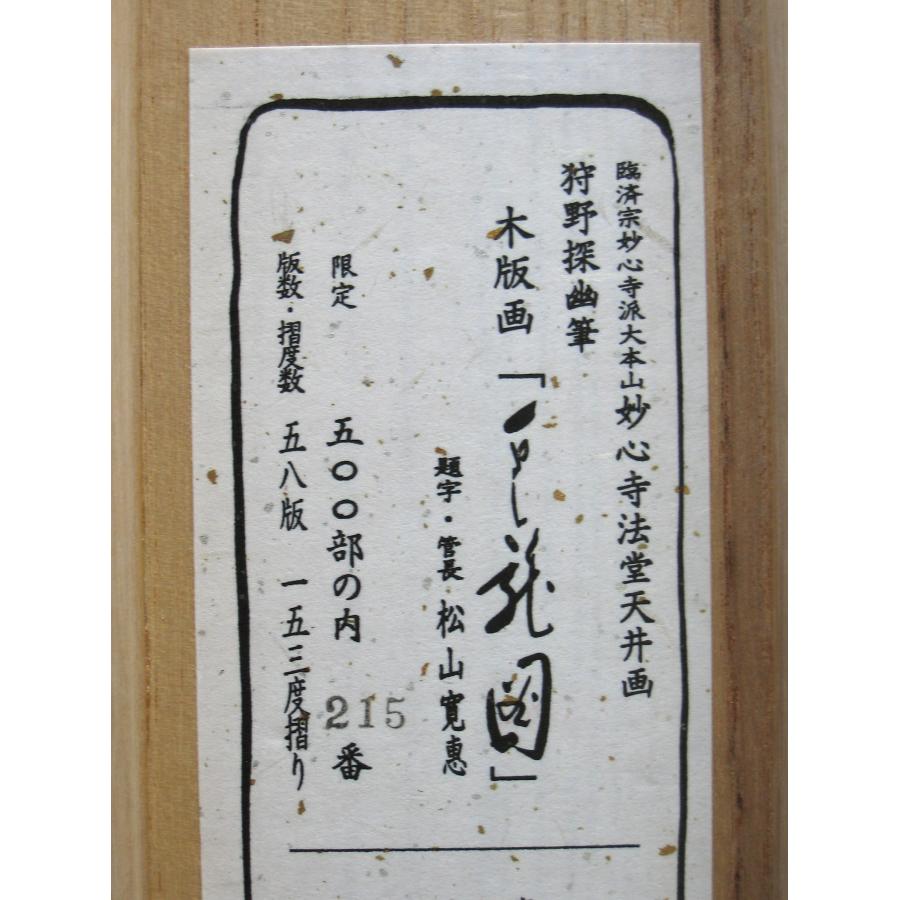 臨済宗妙心寺派大本山妙心寺法堂天井画
狩野探幽筆
木版画「雲龍図」
題字・管長 松山寛惠
限定 五〇〇部の内 215番
版数・摺度数 五八版 一五三度摺り